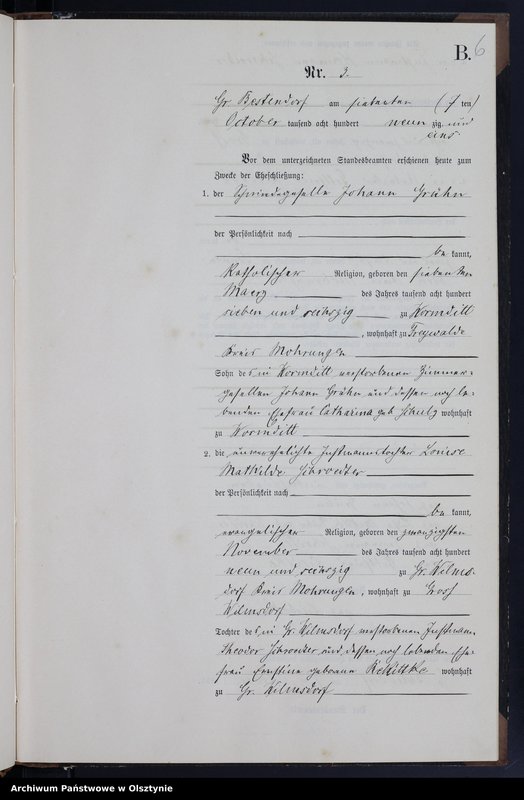 B. 6
Nr. 3.
Gr. Bestendorf am siebenten (7ten)
October tausend acht hundert neunzig und
eins
Vor dem unterzeichneten Standesbeamten erschienen heute zum
Zwecke der Eheschließung:
1. der Schmiedegeselle Johann Grühn
der Persönlichkeit nach
be kannt,
katholischer Religion, geboren den siebenten
Maerz des Jahres tausend acht hundert
sieben und sechszig zu Wormditt
, wohnhaft zu Freywalde
Kreis Mohrungen
Sohn des in Wormditt verstorbenen Zimmer-
gesellen Johann Grühn und dessen noch le-
benden Ehefrau Catharina geb. Schulz wohnhaft
zu Wormditt
2. die unverehelichte Instmannstochter Louise
Mathilde Schroedter
der Persönlichkeit nach
be kannt,
evangelischer Religion, geboren den zwanzigsten
November des Jahres tausend acht hundert
neun und sechszig zu Gr. Wilms-
dorf Kreis Mohrungen, wohnhaft zu Gross
Wilmsdorf
Tochter des in Gr. Wilmsdorf verstorbenen Instmann
Theodor Schroedter und dessen noch lebenden Ehe-
frau Ernstine geborene wohnhaft
zu Gr. Wilmsdorf
Archiwum Państwowe w Olsztynie